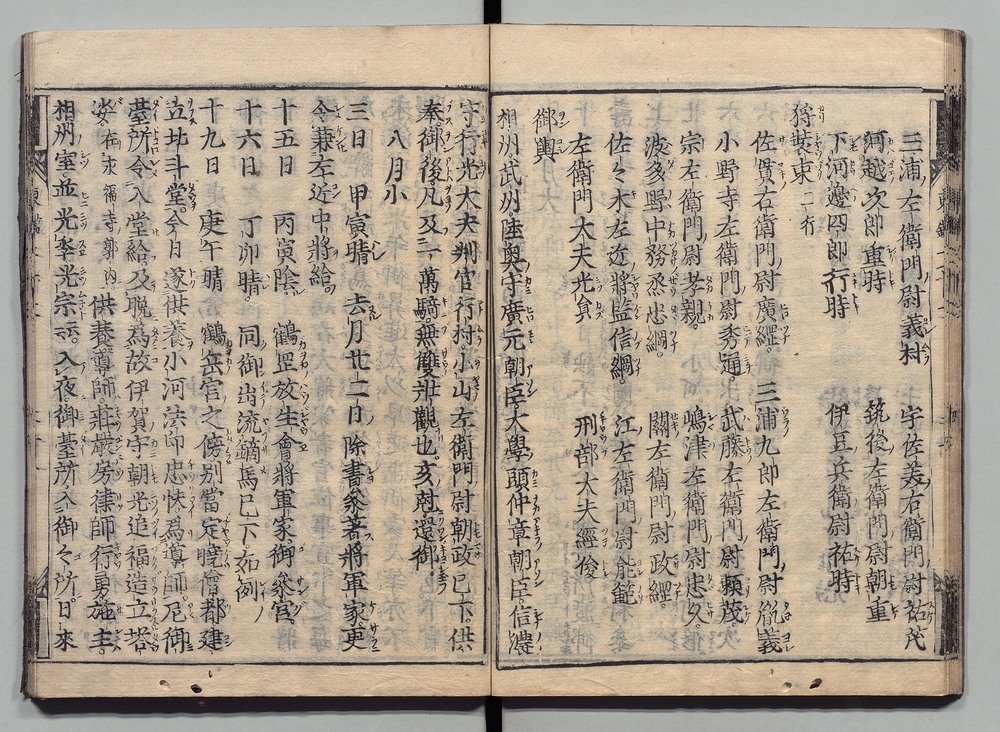 三浦左衛門尉義村　宇佐美右衛門尉祐茂
河越次郎重時　筑後左衛門尉朝重
下河邊四郎行時　伊豆兵衛尉祐時
狩裝束二行
佐貫右衛門尉廣綱　三浦九郎左衛門尉胤義
小野寺左衛門尉秀通　武藤左衛門尉頼茂
宗左衛門尉孝親　嶋津左衛門尉忠久
波多野中務丞忠綱　關左衛門尉政綱
佐々木左近將監信綱　江左衛門尉能範
左衛門大夫光員　刑部大夫經俊
御輿
相州武州陸奥守廣元朝臣大學頭仲章朝臣信濃
守行光大夫判官行村小山左衛門尉朝政已下供
奉御後凡及一萬騎無雙壯觀也亥尅還御
八月小
三日　甲寅晴　去月廿二日除書參著將軍家更
令兼左近中將給
十五日　丙寅陰　鶴岡放生會將軍家御參宮
十六日　丁卯晴　同御出流鏑馬已下如例
十九日　庚午晴　鶴岳宮之傍別當定曉僧都建
立北斗堂今日遂供養小河法印忠快爲導師尼御
臺所令入堂給及晩爲故伊賀守朝光追福造立塔
婆在永福寺郭内供養導師莊嚴房律師行勇施主
相州室並光季光宗云云入夜御臺所入御々所日來